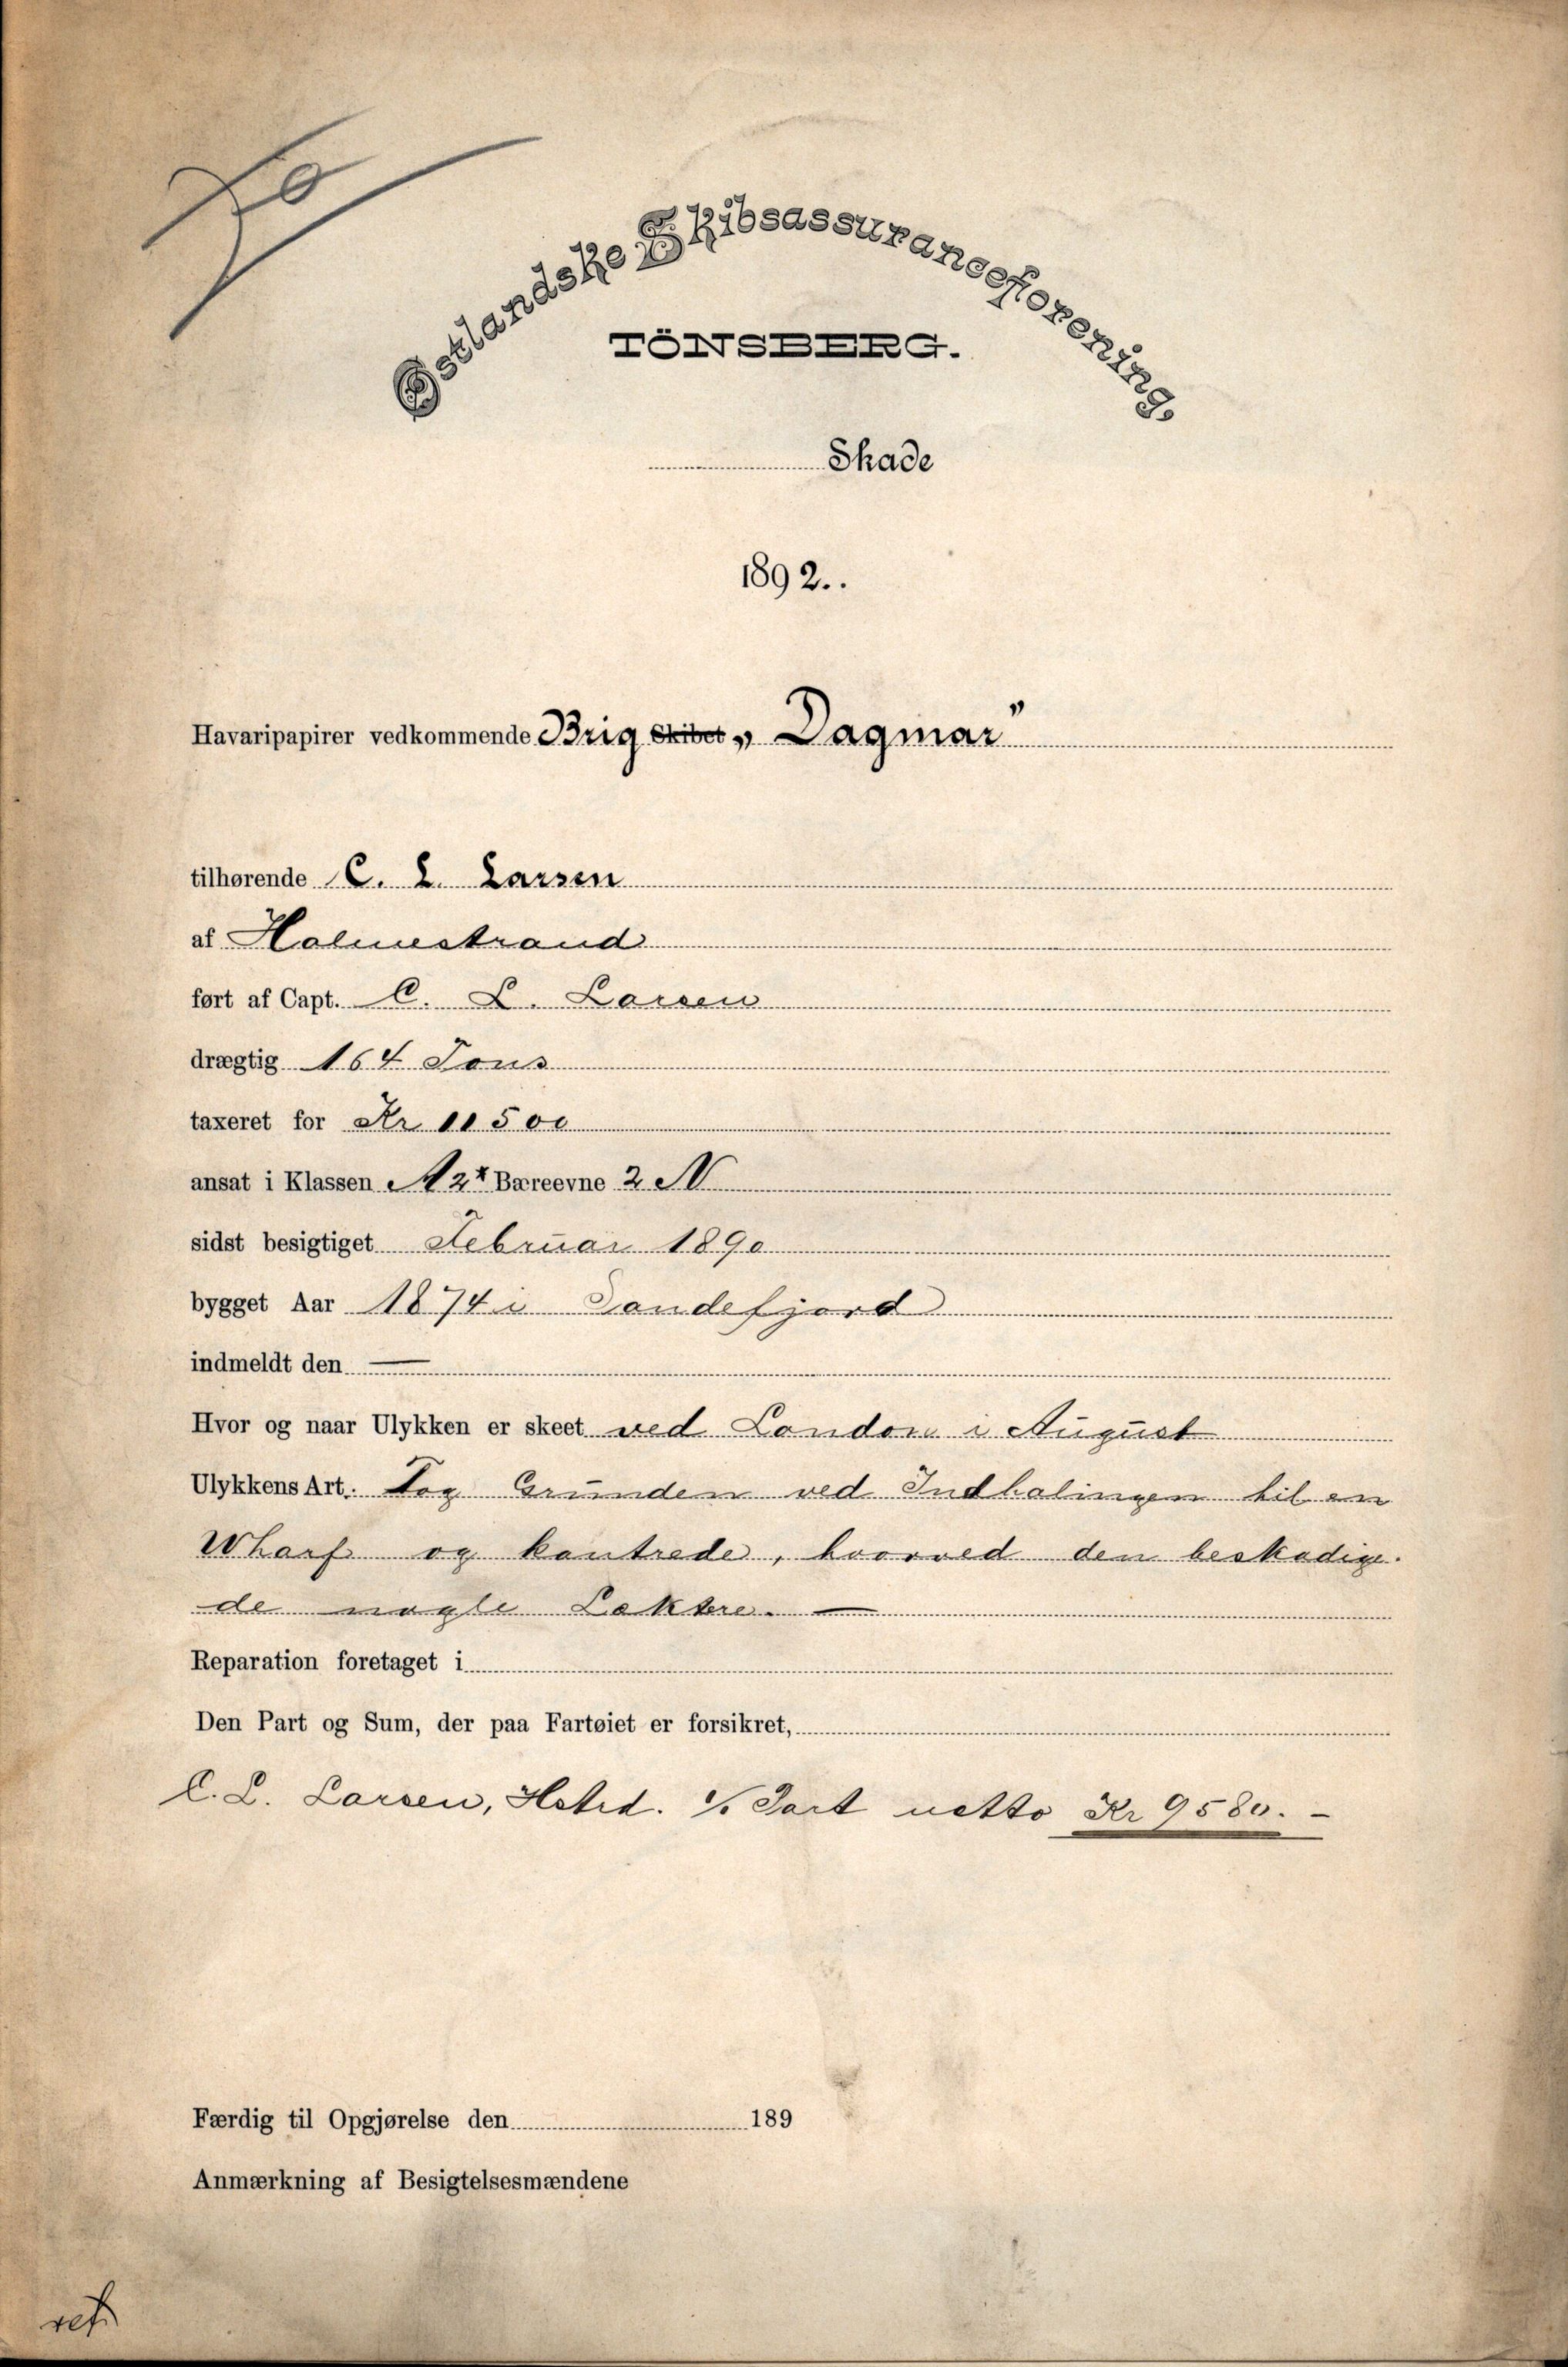 Østlandske Skibsassuranceforening,
TÖNSBERG.
Skade
1892..
Havaripapirer vedkommende Brig Skibet „ Dagmar"
tilhørende C. L. Larsen
af Holmestrand
ført af Capt. C. L. Larsen
drægtig 164 Tons
taxeret for Kr 11500
ansat i Klassen A 2* Bæreevne 2 N
sidst besigtiget Februar 1890
bygget Aar 1874 i Sandefjord
indmeldt den —
Hvor og naar Ulykken er skeet ved London i August
Ulykkens Art: Tog Grunden ved Indhalingen til en
Wharf og kantrede, hvorved den beskadige-
de nogle Lektere. —
Reparation foretaget i
Den Part og Sum, der paa Fartøiet er forsikret,
C. L. Larsen, Hstrd. 1/1 Part netto Kr 9580. –
Færdig til Opgjørelse den 189
Anmærkning af Besigtelsesmændene